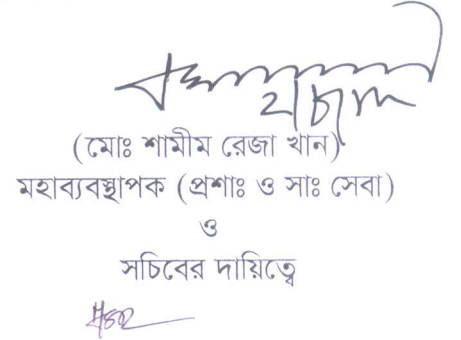 (মোঃ শামীম রেজা খান)
মহাব্যবস্থাপক (প্রশাঃ ও সাঃ সেবা)
ও
সচিবের দায়িত্বে